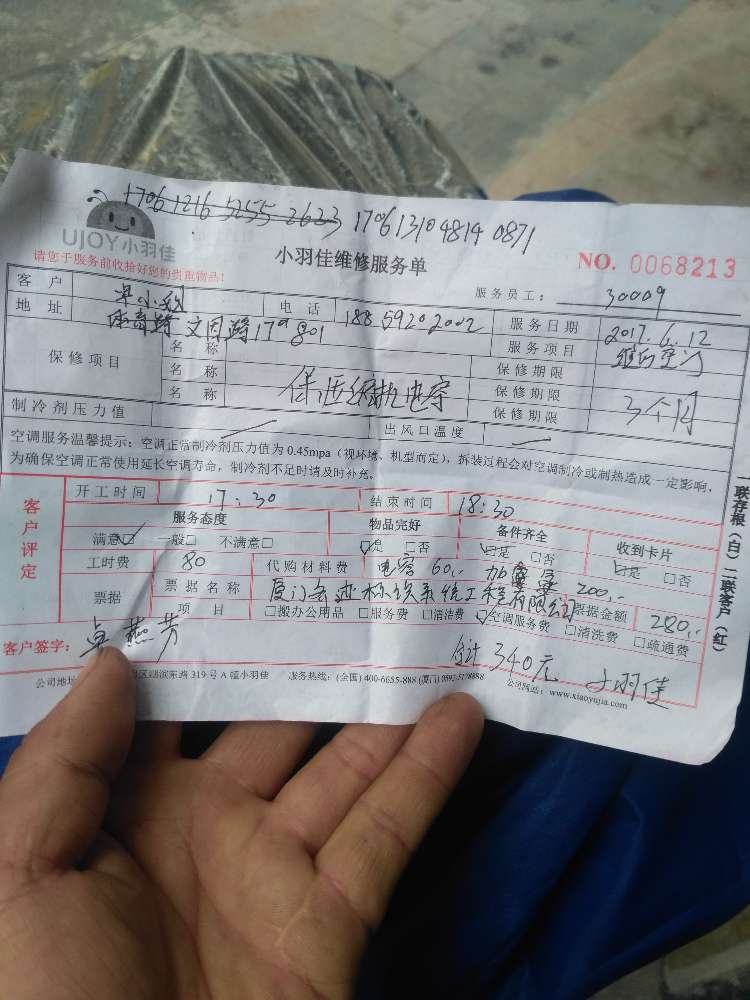 1706 1216 5255 2623 1706 1310 4814 0871
UJOY小羽佳
小羽佳维修服务单
NO. 0068213
请您于服务前收拾好您的贵重物品!
服务员工: 30009
客户 卓小 电话 188 5920 2002 服务日期 2017.6.12
地址 文园路17# 801 服务项目
保修项目 名称 保修期限
名称 保修期限 3个月
名称 保修期限
制冷剂压力值 出风口温度
空调服务温馨提示:空调正常制冷剂压力值为 0.45mpa(视环境、机型而定),拆装过程会对空调制冷或制热造成一定影响,
为确保空调正常使用延长空调寿命,制冷剂不足时请及时补充。
客户评定
开工时间 17:30 结束时间 18:30
服务态度 物品完好 备件齐全 收到卡片
满意☑ 一般□ 不满意□ ☑是 □否 ☑是 □否 ☑是 □否
工时费 80 代购材料费 电容 60.- 200.-
票据 票据名称 厦门 系统工程有限公司 票据金额 280.-
项目 □搬办公用品 □服务费 □清洁费 ☑空调服务费 □清洗费 □疏通费
客户签字: 卓燕芳
合计 340元 小羽佳
公司地址 区湖滨东路 319 号 A 幢小羽佳 服务热线:(全国) 400-6655-888 (厦门) 0592-5178888 公司网站:www.xiaoyujia.com
一联存根(白)二联客户(红)